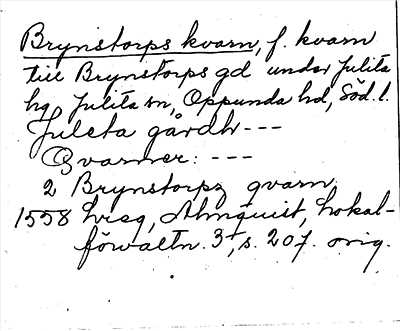 Brynstorps kvarn, f. kvarn
till Brynstorps gd under Julita
hg, Julita sn, Oppunda hd, Söd. l.
Juleta gårdh ---
Qvarner: ---
2 Brynstorpz qvarn
1558 Almquist, Lokal-
förvaltn. 3, s. 207. orig.